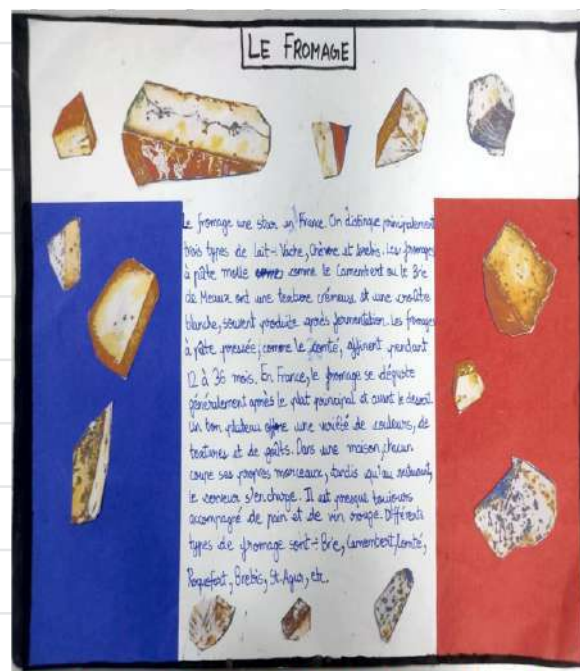 LE FROMAGE
Le fromage une star en France. On distingue principalement
trois types de lait :- Vache, Chèvre et brebis. Les fromages
à pâte molle comme le Camembert ou le Brie
de Meaux ont une texture crémeus et une croûtre
blanche, souvent produite après fermentation. Les fromages
à pâte pressée, comme le comté, affinent pendant
12 à 36 mois. En France, le fromage se déguste
généralement après le plat principal et avant le dessert.
Un bon plateau offre une variété de couleurs, de
textures et de goûts. Dans une maison, chacun
coupe ses propres morceaux, tandis qu'au restaurant,
le serveur s'en charge. Il est presque toujours
accompagné de pain et de vin rouge. Différents
types de fromage sont :- Brie, Camembert, Comté,
Roquefort, Brebis, St. Agur, etc.